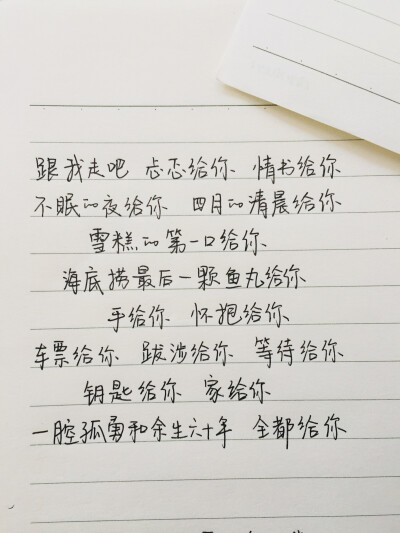 跟我走吧 忐忑给你 情书给你
不眠的夜给你 四月的清晨给你
雪糕的第一口给你
海底捞最后一颗鱼丸给你
手给你 怀抱给你
车票给你 跋涉给你 等待给你
钥匙给你 家给你
一腔孤勇和余生六十年 全都给你